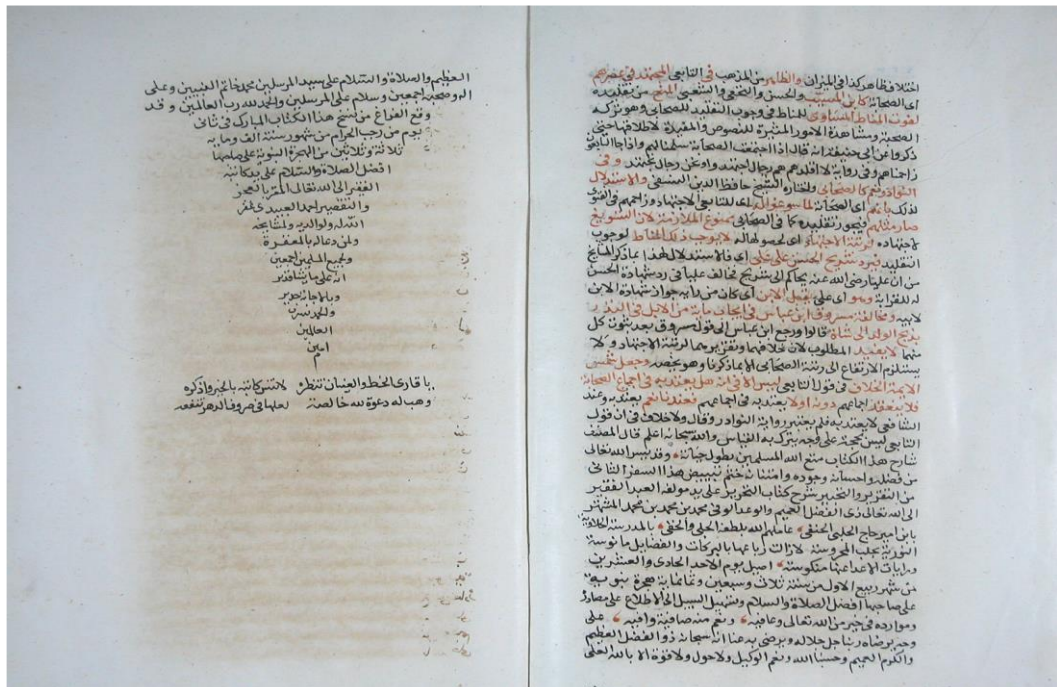 اختلاف ظاهر كذا في الميزان والظاهر من المذهب في التابعي المجتهد في عصرهم
اى الصحابة كابن المسيب والحسن والنخعي والشعبي المنع من تقليده
لفوت المناط المساوى للمناط في وجوب التقليد للصحابي وهو بركة
الصحبة ومشاهدة الامور المثيرة للنصوص والمقيدة لاطلاقها حتى
ذكروا عن ابى حنيفة انه قال اذا اجتمعت الصحابة سلمنا لهم واذا جا التابعون
زاحمناهم وفى رواية لا اقلدهم هم رجال اجتهدوا ونحن رجال نجتهد وفى
النوادر نعم كالصحابى واختاره الشيخ حافظ الدين النسفى والاستدلال
لذلك بانهم اى الصحابة لما سوغوا له اى للتابعى الاجتهاد وزاحمهم في الفتوى
صار مثلهم فيجوز تقليده كما فى الصحابى ممنوع الملازمة لان التسويغ
لاجتهاده لرتبة الاجتهاد اى لحصولها له لا يوجب ذلك المناط لوجوب
التقليد فبرد شريح الحسن على على اى فالاستدلال لهذا بما ذكر المشايخ
من ان عليا رضى الله عنه تحاكم الى شريح فخالف عليا فى رد شهادة الحسن
له للقرابة وهو اى على يقبل الابن اى كان من رايه جواز شهادة الابن
لابيه ومخالفة مسروق ابن عباس فى ايجاب ماية من الابل فى النذر
بذبح الولد الى شاة قالوا ورجع ابن عباس الى قول مسروق بعد ثبوت كل
منهما لا يفيد المطلوب لان خلافهما وتقريرهما لرتبة الاجتهاد ولا
يستلزم الارتفاع الى رتبة الصحابى الا بما ذكرنا وهو يخصه وجعل شمس
الايمة الخلاف فى قول التابعى ليس الا فى انه هل يعتد به فى اجماع الصحابة
فلا ينعقد اجماعهم دونه اولا يعتد به فى اجماعهم فعندنا نعم يعتد به وعند
الشافعى لا يعتد به فلم يعتبر رواية النوادر وقال ولا خلاف فى ان قول
التابعى ليس بحجة على وجه يترك به القياس والله سبحانه اعلم قال المصنف
شارح هذا الكتاب متع الله المسلمين بطول حياته وقد يسر الله تعالى
من فضله واحسانه وجوده وامتنانه ختم تبييض هذا السفر الثانى
من التقرير والتحبير شرح كتاب التحرير على يد مولفه العبد الفقير
الى الله تعالى ذى الفضل العميم والوعد الوفى محمد بن محمد بن محمد المشتهر
بابن امير حاج الحلبى الحنفى عاملهم الله بلطفه الجلى والخفى بالمدرسة الحلاوية
النورية بحلب المحروسة لا زالت رباعها بالبركات والفضايل مانوسة
ورايات الاعدا عنها منكوسة اصيل يوم الاحد الحادى والعشرين
من شهر ربيع الاول من سنة ثلاث وسبعين وثمانماية هجرة نبوية
على صاحبها افضل الصلاة والسلام وتسهيل السبيل الى الاطلاع على مصادره
وموارده فى خير من الله تعالى وعافيه ونعم منه صافية وافيه على
وجه يرضاه ربنا جل جلاله ويرضى به عنا انه سبحانه ذو الفضل العظيم
والكرم العميم وحسبنا الله ونعم الوكيل ولا حول ولا قوة الا بالله العلى
العظيم والصلاة والسلام على سيد المرسلين محمد خاتم النبيين وعلى
اله وصحبه اجمعين وسلام على المرسلين والحمد لله رب العالمين وقد
وقع الفراغ من نسخ هذا الكتاب المبارك فى ثانى
يوم من رجب الحرام من شهور سنة الف وماية
ثلاثة وثلاثين من الهجرة النبوية على صاحبها
افضل الصلاة والسلام على يد كاتبه
الفقير الى الله تعالى المقر بالعجز
والتقصير احمد العبيدى غفر
الله له ولوالديه ولمشايخه
ولمن دعا له بالمغفرة
ولجميع المسلمين اجمعين
انه على ما يشا قدير
وبالاجابة جدير
والحمد لله رب
العالمين
امين
م
يا قارى الخط والعينان تنظره لا تنس كاتبه بالخير واذكره
وهب له دعوة لله خالصة لعلها فى صروف الدهر تنفعه